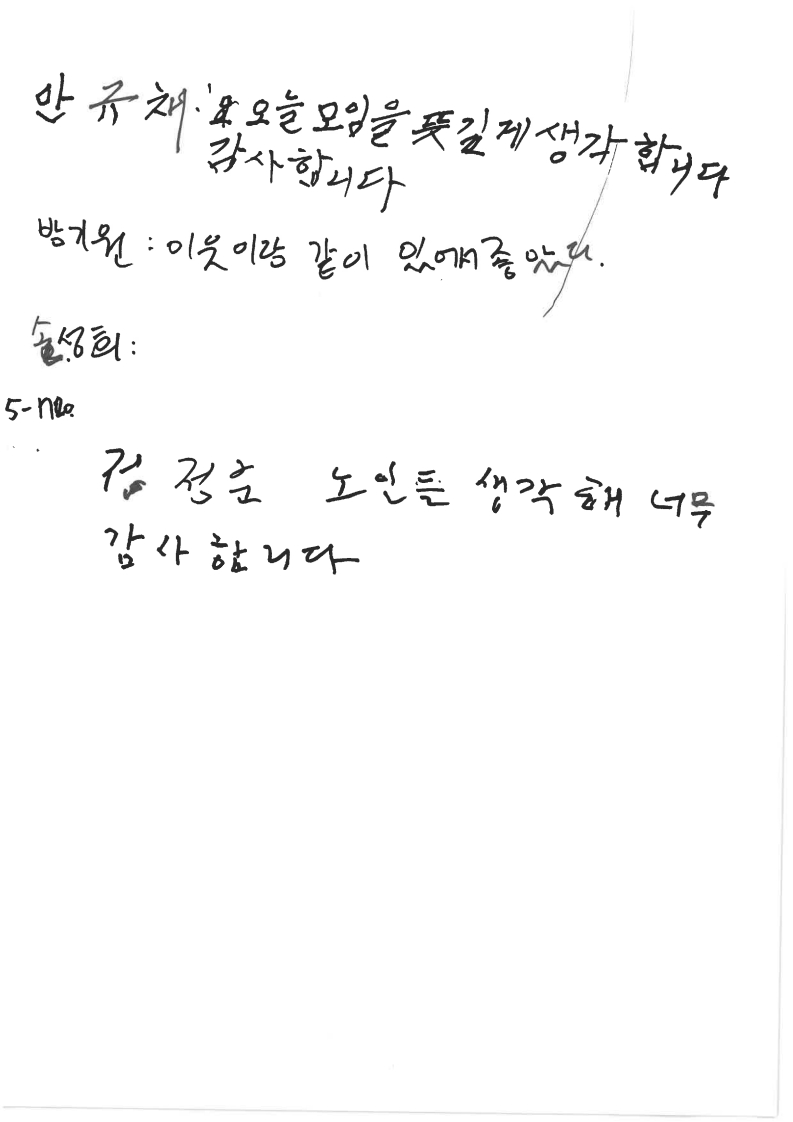 안규채: 오늘 모임을 뜻깊게 생각합니다
감사합니다
방기원 : 이웃이랑 같이 있에서 좋았다.
솔성희 :
정순 노인들 생각해 너무
감사합니다